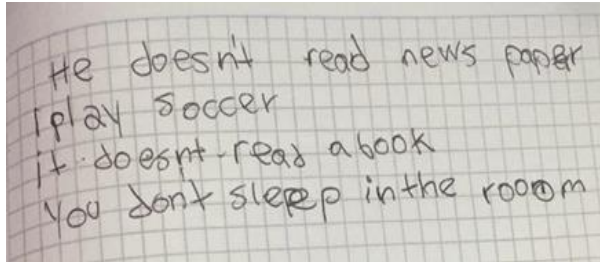 He doesn't read news paper
i play soccer
it doesnt read a book
you dont sleep in the rooom